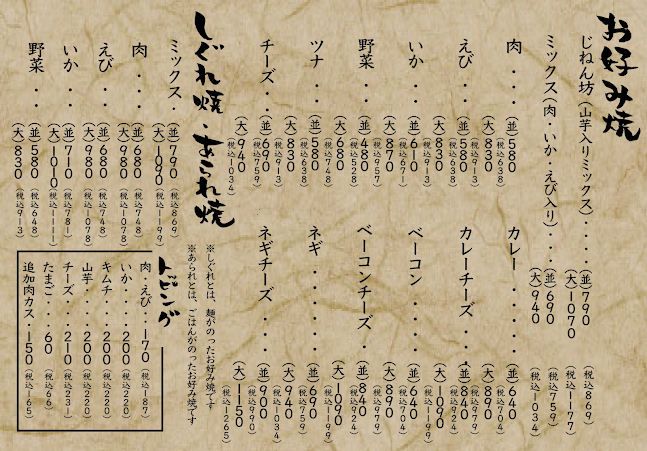 お好み焼
じねん坊(山芋入りミックス)・・・・(並)790(税込869)
(大)1070(税込1177)
ミックス(肉・いか・えび入り)・・(並)690(税込759)
(大)940(税込1034)
肉・・・(並)580(税込638)
(大)830(税込913)
えび・・(並)580(税込638)
(大)830(税込913)
いか・・(並)610(税込671)
(大)870(税込957)
野菜・・(並)480(税込528)
(大)680(税込748)
ツナ・・(並)580(税込638)
(大)830(税込913)
チーズ・・(並)690(税込759)
(大)940(税込1034)
カレー・・・・(並)640(税込704)
(大)890(税込979)
カレーチーズ・・・(並)840(税込924)
(大)1090(税込1199)
ベーコン・・・(並)640(税込704)
(大)890(税込979)
ベーコンチーズ・・(並)840(税込924)
(大)1090(税込1199)
ネギ・・・・(並)690(税込759)
(大)940(税込1034)
ネギチーズ・・・(並)900(税込990)
(大)1150(税込1265)
しぐれ焼 あられ焼
※しぐれとは、麺がのったお好み焼です
※あられとは、ごはんがのったお好み焼です
ミックス・(並)790(税込869)
(大)1090(税込1199)
肉・・(並)680(税込748)
(大)980(税込1078)
えび・・(並)680(税込748)
(大)980(税込1078)
いか・・(並)710(税込781)
(大)1010(税込1111)
野菜・・(並)580(税込648)
(大)830(税込913)
トピング
肉・えび・・170(税込187)
いか・・・・200(税込220)
キムチ・・・200(税込220)
山芋・・・・200(税込220)
チーズ・・・210(税込231)
たまご・・・60(税込66)
追加肉カス・150(税込165)